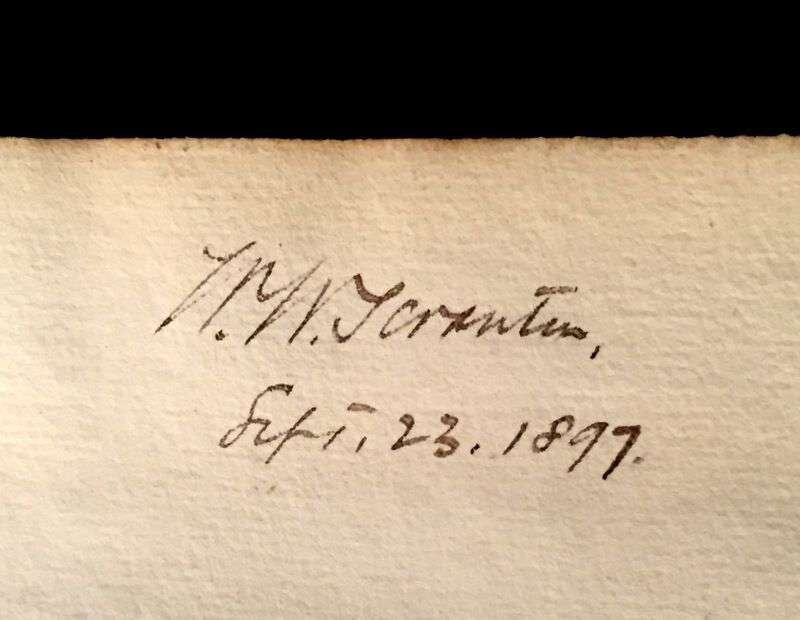 W. W. Scranton,
Sept, 23. 1897.